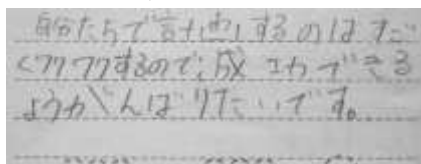 自分たちで計画するのはすご
くワクワクするので、成功できる
ようがんばりたいです。